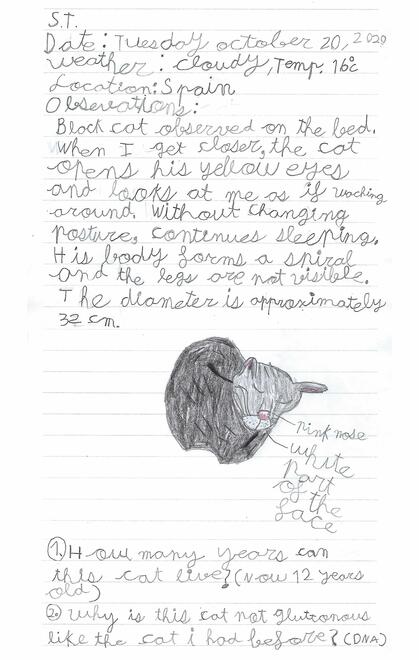 S.T.
Date: Tuesday october 20, 2020
weather: cloudy, Temp. 16ºc
Location: Spain
Observations:
Black cat observed on the bed.
When I get closer, the cat
opens his yellow eyes
and looks at me as if waching
around. Without changing
posture, continues sleeping.
His body forms a spiral
and the legs are not visible.
The diameter is approximately
32 cm.
Pink nose
white
part
of
the
face
1. How many years can
this cat live? (Now 12 years
old)
2. Why is this cat not glutronous
like the cat i had before? (DNA)